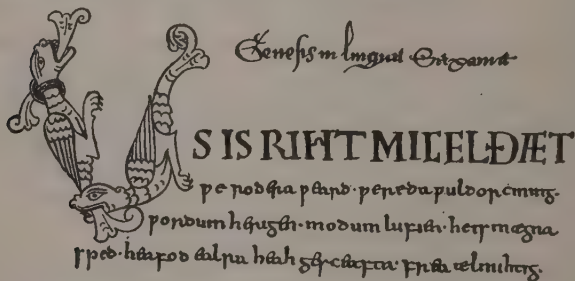 Genesis in lingua
US IS RIHT MICEL ÐÆT
ƿe rodera ƿeard· ƿereda ƿuldorcining·
ƿordum herigen· modum lufien· heis mægna
sped· heafod ealra heah gesceafta· frea ælmihtig·